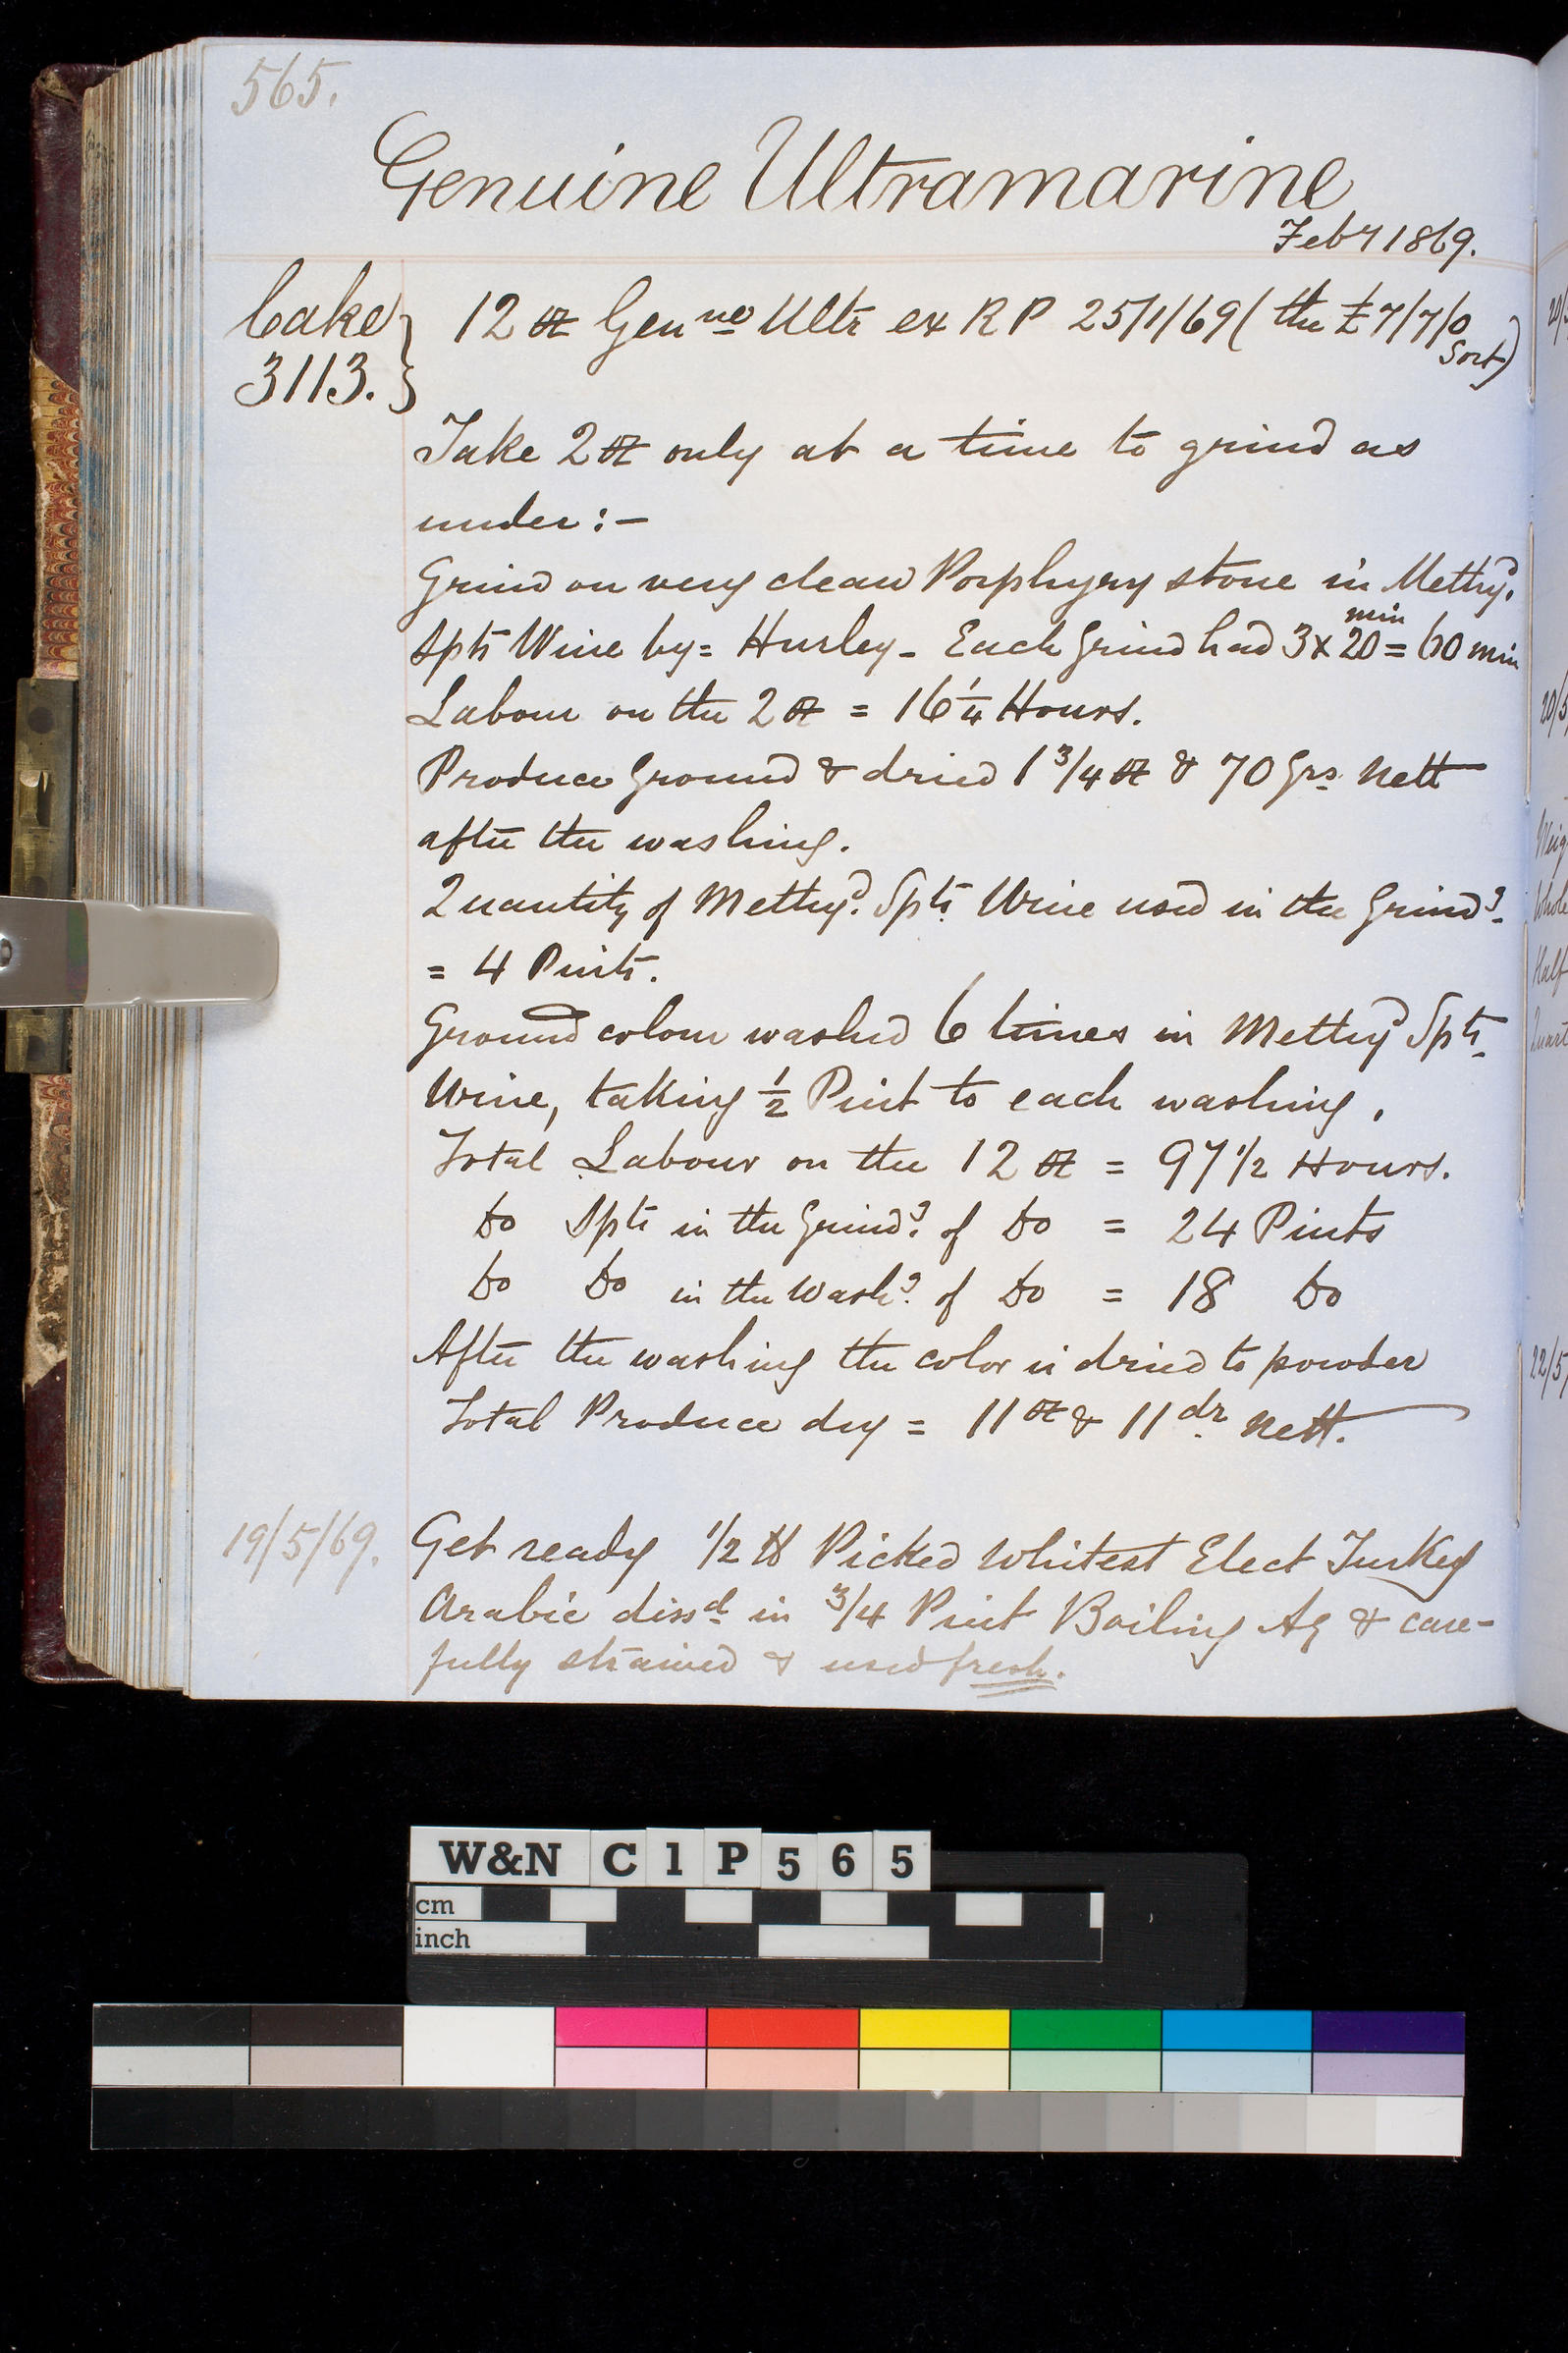 565.
Genuine Ultramarine
Feby 1869.
Cake 3113. } 12 oz Genne Ultr ex R P 25/1/69 (the £7/7/0 Sort)
Take 2 oz only at a time to grind as
under:-
Grind on very clean Porphyry stone in Methyd.
Spts Wine by = Hurley - Each Grind had 3 x 20 min = 60 min
Labour on the 2 oz = 16 1/4 Hours.
Produce Ground & dried 1 3/4 oz & 70 Grs Nett
after the washing.
Quantity of Methyd. Spts. Wine used in the Grindg.
= 4 Pints.
Ground colour washed 6 times in Methyd Spts.
Wine, taking 1/2 Pint to each washing.
Total Labour on the 12 oz = 97 1/2 Hours.
Do Spts in the Grindg. of Do = 24 Pints
Do Do in the Washg. of Do = 18 Do
After the washing the color is dried to powder
Total Produce dry = 11 oz & 11 dr. Nett.
19/5/69. Get ready 1/2 lb Picked Whitest Elect Turkey
Arabic dissd in 3/4 Pint Boiling Aq & care-
fully strained & used fresh.
20/5
Weig
Whole
Half
Quart
22/5/
W&N C1P565
cm
inch